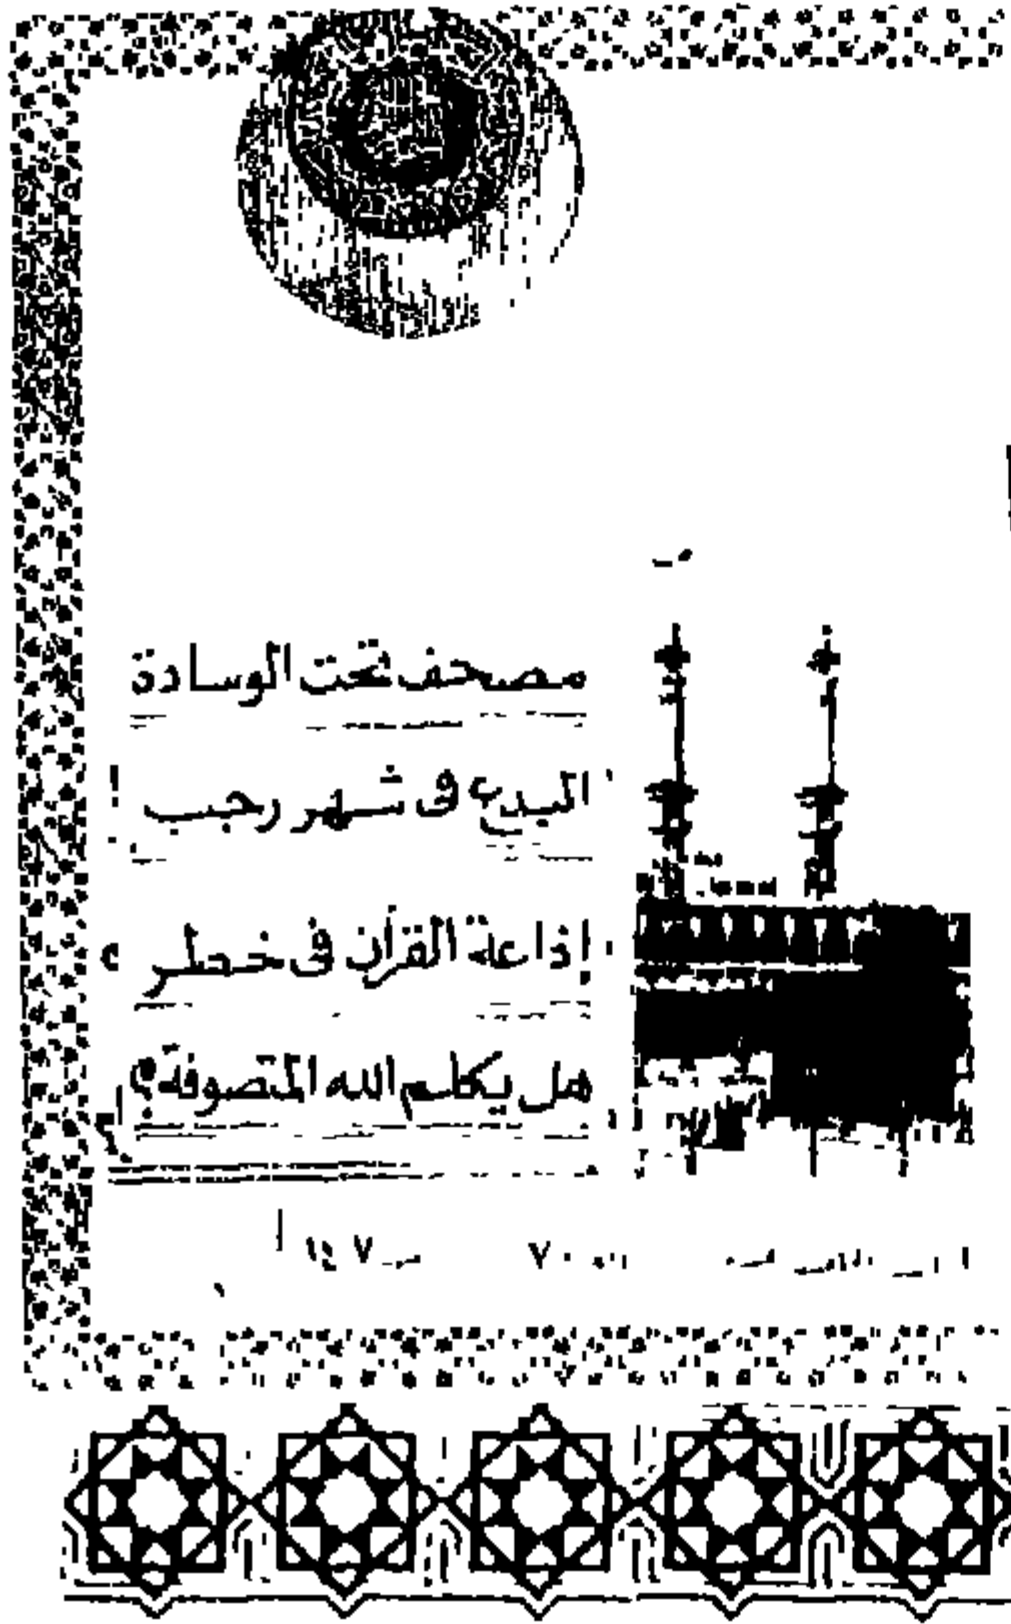 مصحف تحت الوسادة
البدع فى شهر رجب !
إذاعة القرآن فى خطر
هل يكلم الله المتصوفة؟!